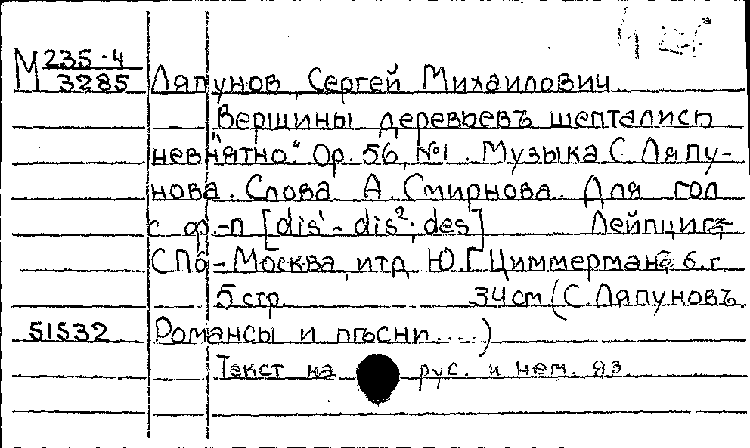 М 235-4
3285 Ляпунов, Сергей Михайлович.
"Вершины деревьевъ шептались
невнятно." Op. 56, №1. Музыка С. Ляпу-
нова. Слова А. Смирнова. Для гол
с ф-п [dis¹ - dis²; des] Лейпциг-
СПб-Москва итд Ю.Г. Циммерманъ б. г.
5 стр. 34 cm (С. Ляпуновъ.
51532 Романсы и пѣсни....)
Текст на рус. и нем. яз.